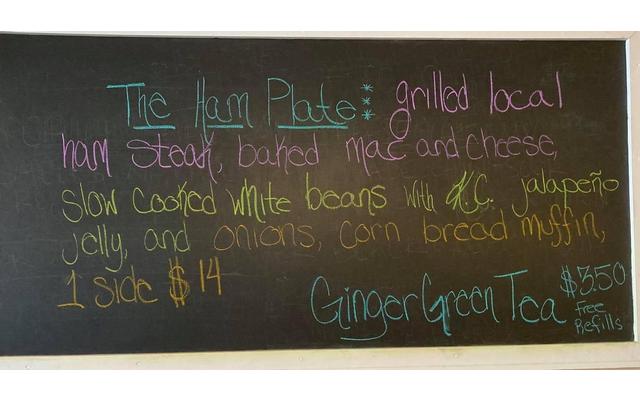 The Ham Plate: grilled local
ham steak, baked mac and cheese,
slow cooked white beans with H.C. jalapeño
jelly, and onions, corn bread muffin,
1 side $14
Ginger Green Tea $3.50
Free
Refills